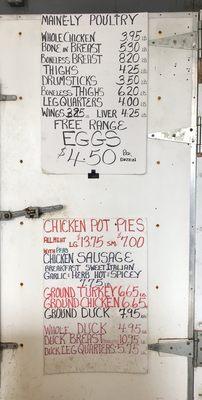 MAINE-LY POULTRY
WHOLE CHICKEN 3.95 LB.
BONE IN BREAST 5.30 LB.
BONELESS BREAST 8.20 LB.
THIGHS 4.25 LB.
DRUMSTICKS 3.50 LB.
BONELESS THIGHS 6.20 LB.
LEG QUARTERS 4.00 LB.
WINGS LIVER 4.25 LB.
FREE RANGE
EGGS
$4.50 PER DOZEN
CHICKEN POT PIES
ALL MEAT LG 13.75 SM $7.00
WITH PEAS
CHICKEN SAUSAGE
BREAKFAST SWEET ITALIAN
GARLIC & HERB HOT & SPICEY
7.75 LB.
GROUND TURKEY 6.65 LB.
GROUND CHICKEN 6.65 LB.
GROUND DUCK 7.95 LB.
WHOLE DUCK 4.95 LB.
DUCK BREAST 10.95 LB.
DUCK LEG QUARTERS 5.75 LB.